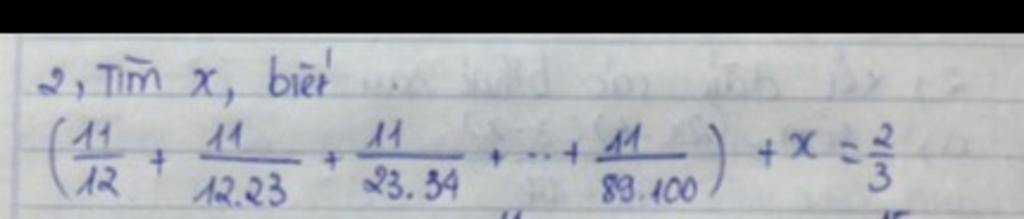 2, Tìm x, biết
(11/12 + 11/12.23 + 11/23.34 + ... + 11/89.100) + x = 2/3